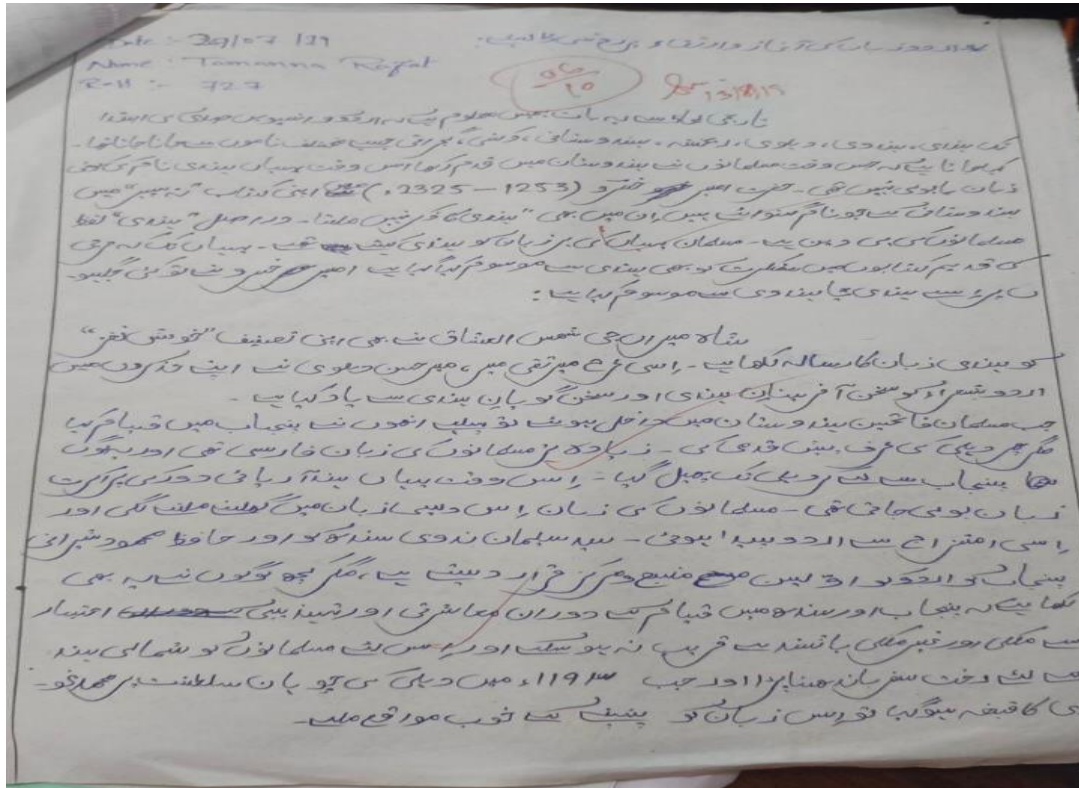 Date :- 29/07/19
اردو زبان کی آغاز و ارتقاء پر بحث کیجئے:
Name : Tamanna Rafat
R-ll :- 727
06/10
13/8/19
تاریخی لحاظ سے یہ بات ہمیں معلوم ہے کہ اردو انیسویں صدی کی ابتدا
تک ہندی، ہندوی، دہلوی، ریختہ، ہندوستانی، دکنی، گجراتی جیسے مختلف ناموں سے جانا جاتا تھا۔
کہا جاتا ہے کہ جس وقت مسلمانوں نے ہندوستان میں قدم رکھا اس وقت یہاں ہندی نام کی کوئی
زبان بولی نہیں تھی۔ حضرت امیر خسرو (1253 – 1325ء) اپنی کتاب "نہ سپہر" میں
ہندوستان کے جو نام گنوائے ہیں ان میں بھی "ہندی کا ذکر نہیں ملتا۔ دراصل "ہندی" لفظ
مسلمانوں کی ہی دین ہے۔ مسلمان یہاں کی ہر زبان کو ہندی کہتے تھے۔ یہاں تک کہ عربی
کی قدیم کتابوں میں سنسکرت کو بھی ہندی سے موسوم کیا گیا ہے امیر خسرو نے تو کئی جگہوں
پر اسے ہندی یا ہندوی سے موسوم کیا ہے:
شاہ میراں جی شمس العشاق نے بھی اپنی تصنیف "خوش نغز"
کو ہندی زبان کا رسالہ لکھا ہے۔ اسی طرح میر تقی میر، میر حسن دہلوی نے اپنے تذکروں میں
اردو شعراء کو سخن آفرینان ہندی اور سخن گویان ہندی سے یاد کیا ہے۔
جب مسلمان فاتحین ہندوستان میں داخل ہوئے تو پہلے انھوں نے پنجاب میں قیام کیا
مگر پھر دہلی کی طرف پیش قدمی کی۔ زیادہ تر مسلمانوں کی زبان فارسی تھی اور
پنجاب سے لے کر دہلی تک پھیل گیا۔ اس وقت یہاں ہند آریائی دور کی پراکرت
زبان بولی جاتی تھی۔ مسلمانوں کی زبان اس دیسی زبان میں گھلنے ملنے لگی اور
اسی امتزاج سے اردو پیدا ہوئی۔ سید سلیمان ندوی سندھ کو اور حافظ محمود شیرانی
پنجاب کو اردو کو اولین منبع و مرکز قرار دیتے ہے، مگر کچھ لوگوں نے یہ بھی
لکھا ہے کہ پنجاب اور سندھ میں قیام کے دوران معاشرتی اور تہذیبی اعتبار
سے ملکی اور غیر ملکی باشندے قریب نہ ہو سکے اور اس لئے مسلمانوں کو شمالی ہند
کے لئے رخت سفر باندھنا پڑا اور جب 1193ء میں دہلی کی چوہان سلطنت پر محمد غو۔
ری کا قبضہ ہو گیا تو اس زبان کو پنپنے کے خوب مواقع ملے۔